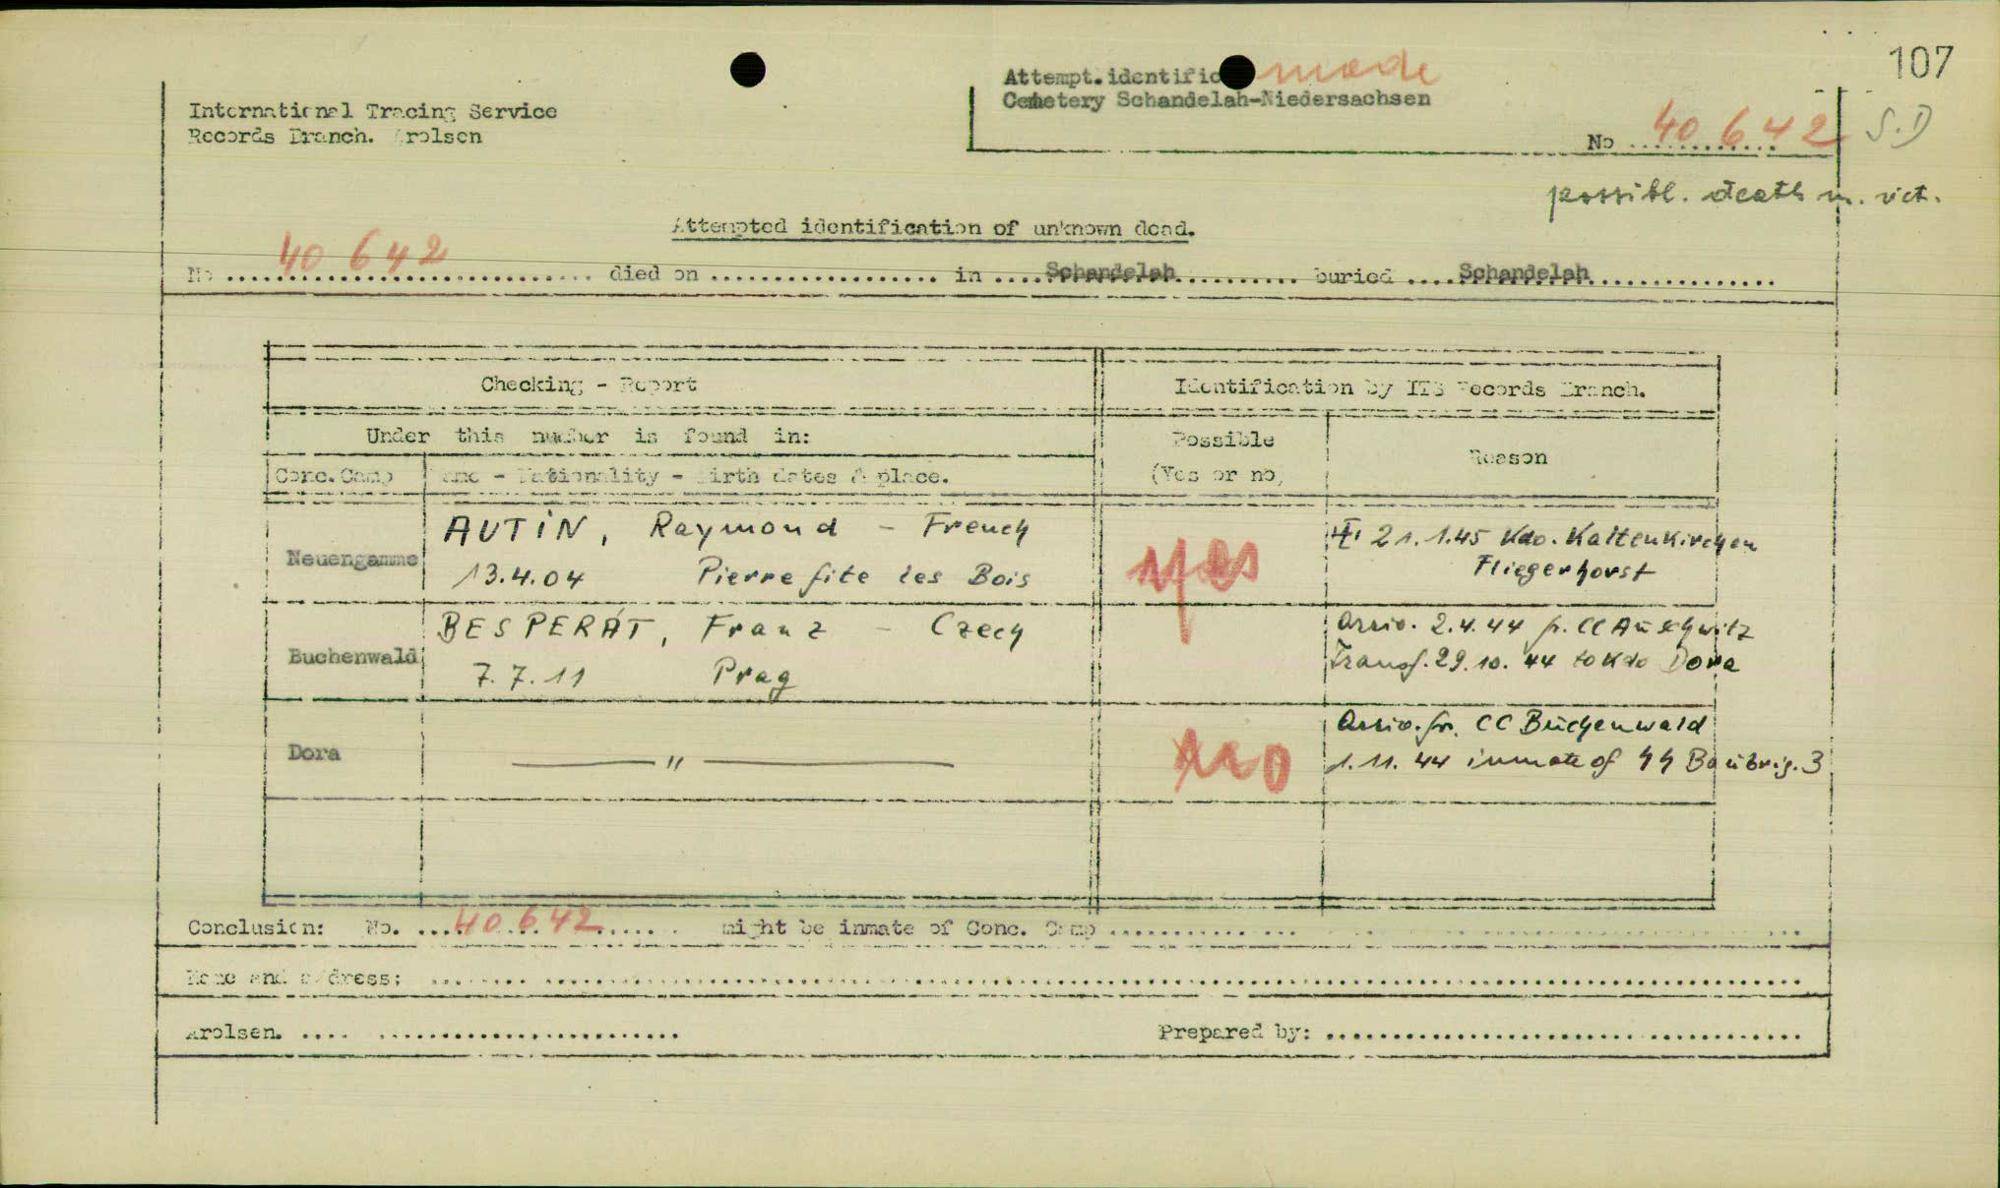 107
Attempt. identific made
Cemetery Schandelah-Niedersachsen
International Tracing Service
Records Branch. Arolsen
No ............ 40 642
S.D
possibl. death m. vict.
Attempted identification of unknown dead.
No ..... 40 642 ..... died on .................. in .... Schandelah .......... buried .... Schandelah ...............
Checking - Report
Identification by ITS Records Branch.
Under this number is found in:
Possible
(Yes or no)
Reason
Conc. Camp
Name - Nationality - Birth dates & place.
Neuengamme
AUTIN, Raymond - French
13.4.04 Pierrefite les Bois
yes
21.1.45 Kdo. Kaltenkirchen
Fliegerhorst
Buchenwald
BESPERÁT, Franz - Czech
7.7.11 Prag
Arriv. 2.4.44 fr. CC Auschwitz
Transf. 29.10.44 to Kdo Dora
Dora
— " —
no
Arriv. fr. CC Buchenwald
1.11.44 inmate of SS Baubrig. 3
Conclusion: No. .... 40 642 ...... might be inmate of Conc. Camp ............
Name and address: ........
Arolsen. .... ........................
Prepared by: ........................